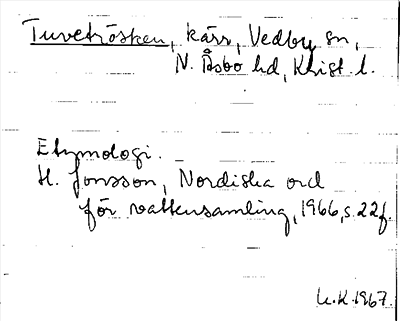 Tuveträsken, kärr, Vedby sn,
N. Åsbo hd, Krist. l.
Etymologi.
H. Jonsson, Nordiska ord
för vattensamling, 1966, s. 22 f.
U.K. 1967.